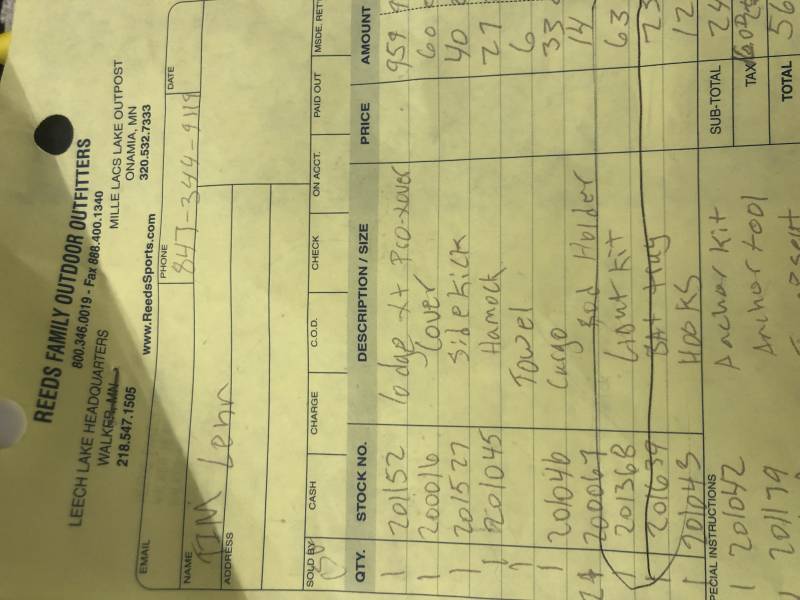 REEDS FAMILY OUTDOOR OUTFITTERS
800.346.0019 - Fax 888.400.1340
LEECH LAKE HEADQUARTERS
WALKER, MN
218.547.1505
MILLE LACS LAKE OUTPOST
ONAMIA, MN
320.532.7333
www.ReedsSports.com
EMAIL PHONE 847-344-9119 DATE
NAME TIM Lehn
ADDRESS
SOLD BY CASH CHARGE C.O.D. CHECK ON ACCT. PAID OUT MSDE. RET
QTY. STOCK NO. DESCRIPTION / SIZE PRICE AMOUNT
1 201152 lodge XT Pro-xover 959
1 200016 Cover 60
1 201527 Sidekick 40
1 201045 Hamock 27
1 Towel 6
1 201046 Cargo 33
200067 Rod Holder 14
201368 Giant Kit 63
1 201639 Bait tray 23
1 201043 HOOKS 12
SPECIAL INSTRUCTIONS SUB-TOTAL 24
1 201042 Anchar Kit TAX
201179 Anchor tool TOTAL 56